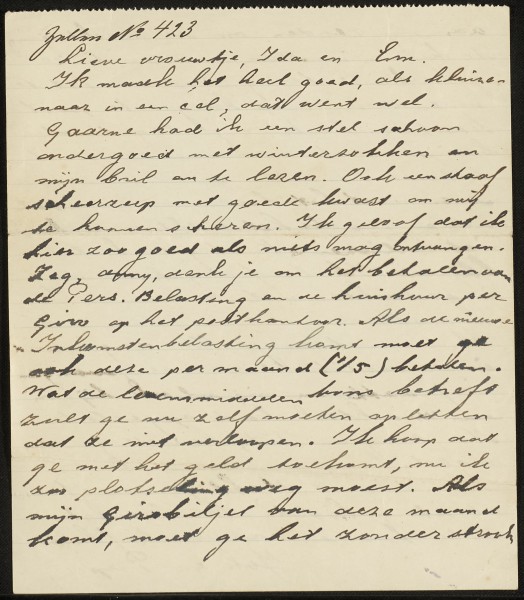 Zellen No 423
Lieve vrouwtje, Ida en Em.
Ik maak het heel goed, als kluize-
naar in een cel, dat went wel.
Gaarne had ik een stel schoon
ondergoed met wintersokken en
mijn bril om te lezen. Ook een staaf
scheerzeep met goede kwast om mij
te kunnen scheren. Ik geloof dat ik
hier zoo goed als niets mag ontvangen.
Zeg, denk je om het betalen van
de Pers. Belasting en de huishuur per
Giro op het postkantoor. Als de nieuwe
Inkomstenbelasting komt moet ge
ook deze per maand (1/5) betalen.
Wat de levensmiddelen bons betreft
zult ge nu zelf moeten opletten
dat ze niet verloopen. Ik hoop dat
ge met het geld toekomt, nu ik
zoo plotseling weg moest. Als
mijn Girobiljet van deze maand
komt, moet ge het zonder strook